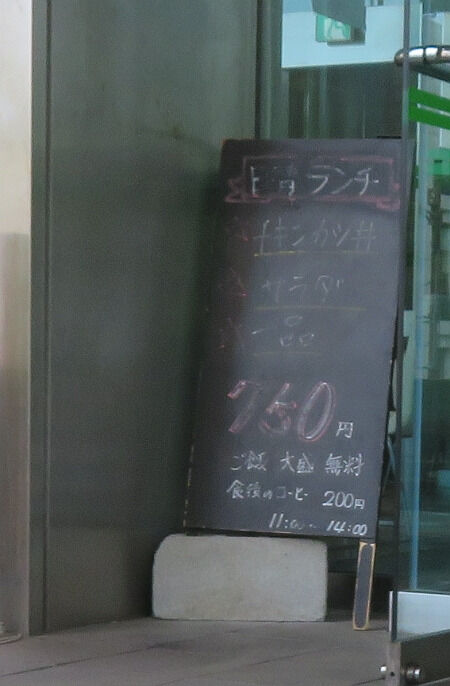 日替ランチ
チキンカツ丼
サラダ
一品
750円
ご飯 大盛 無料
食後のコーヒー 200円
11:00~14:00